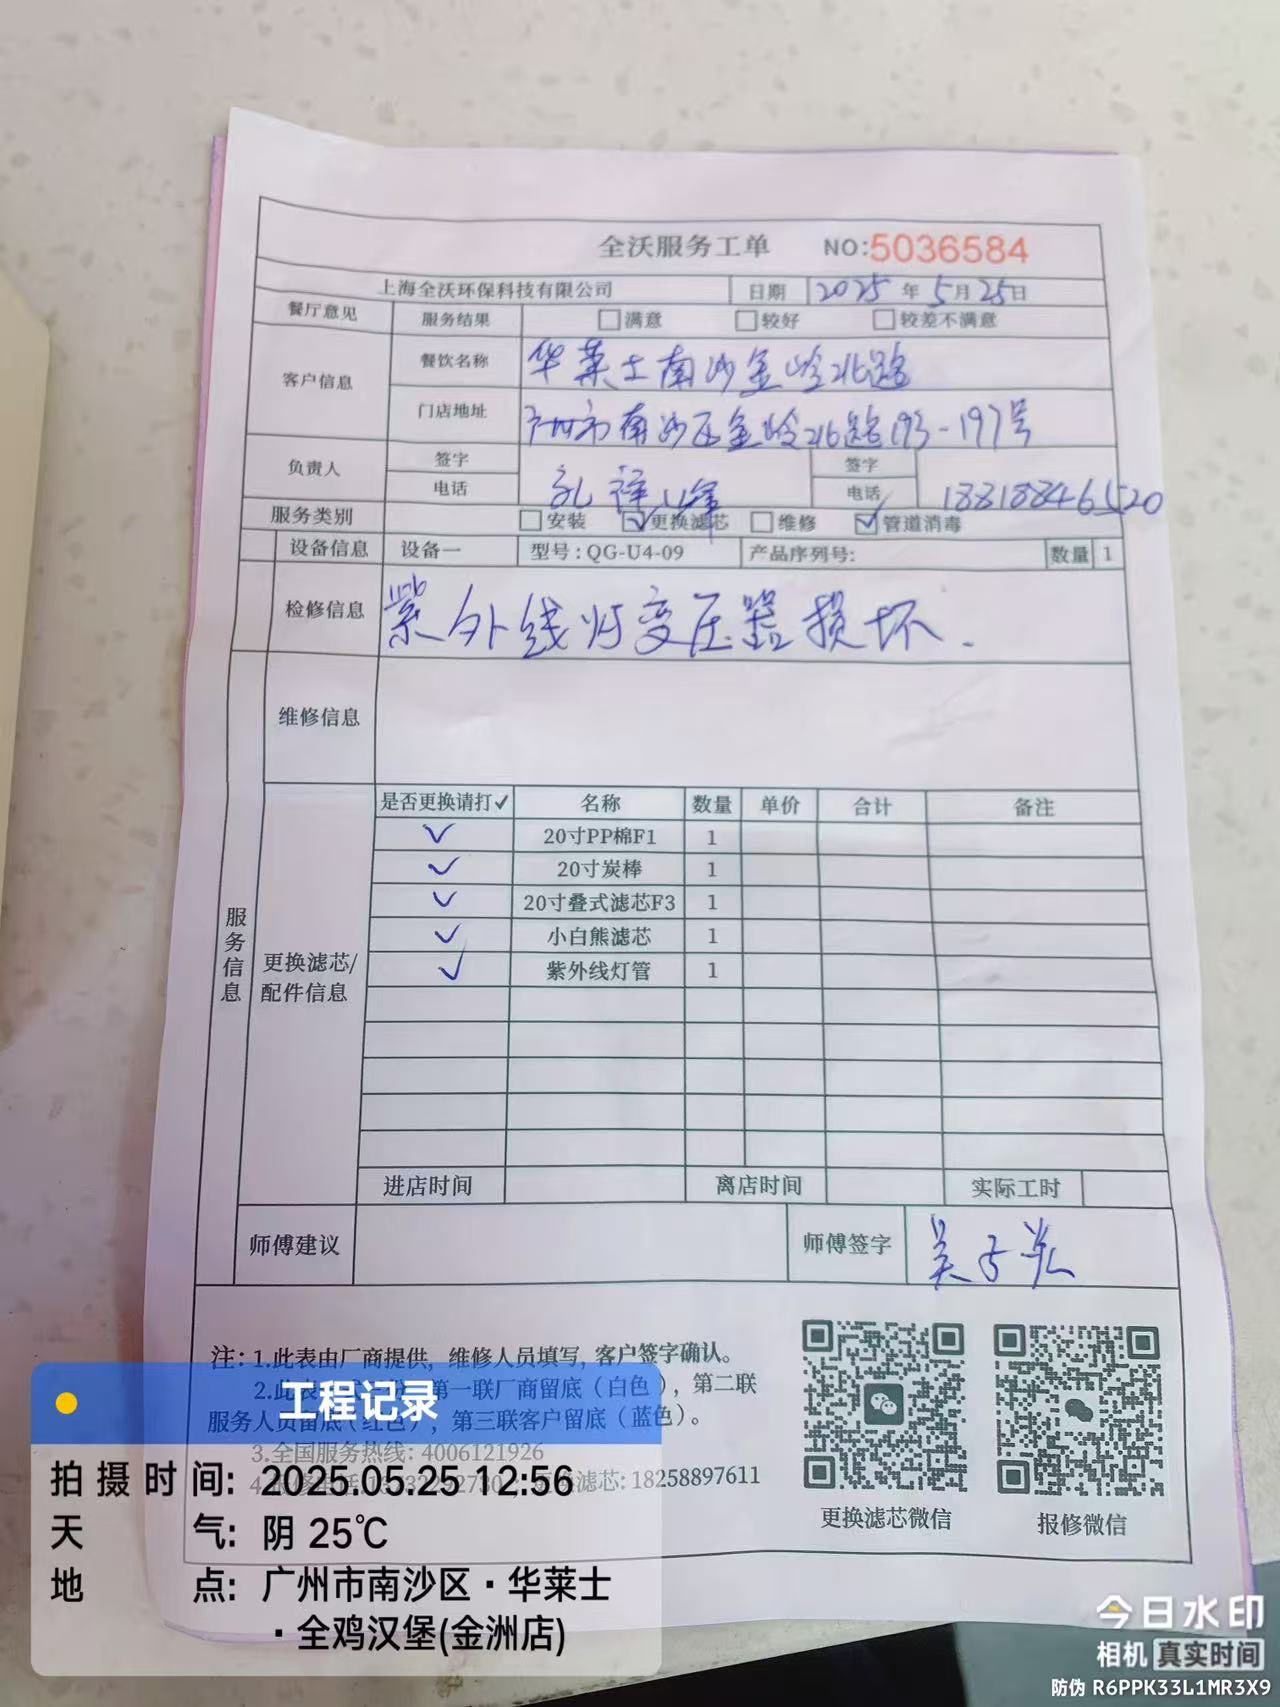 全沃服务工单 NO:5036584
上海全沃环保科技有限公司 日期 2025 年 5 月 25 日
餐厅意见 服务结果 满意 较好 较差不满意
客户信息 餐饮名称 华莱士南沙金岭北路
门店地址 广州市南沙区金岭北路193-197号
负责人 签字 签字
电话 孔祥 电话 18818846520
服务类别 安装 ✓更换滤芯 维修 ✓管道消毒
设备信息 设备一 型号:QG-U4-09 产品序列号: 数量 1
检修信息 紫外线灯变压器损坏.
维修信息
服务信息
更换滤芯/配件信息
是否更换请打✓ 名称 数量 单价 合计 备注
✓ 20寸PP棉F1 1
✓ 20寸炭棒 1
✓ 20寸叠式滤芯F3 1
✓ 小白熊滤芯 1
✓ 紫外线灯管 1
进店时间 离店时间 实际工时
师傅建议 师傅签字 吴
注: 1.此表由厂商提供, 维修人员填写, 客户签字确认。
2.此表 第一联厂商留底(白色), 第二联
服务人员留底(红色), 第三联客户留底(蓝色)。
3.全国服务热线: 4006121926
滤芯: 18258897611
更换滤芯微信 报修微信
工程记录
拍摄时间: 2025.05.25 12:56
天气: 阴 25℃
地点: 广州市南沙区·华莱士
·全鸡汉堡(金洲店)
今日水印
相机 真实时间
防伪 R6PPK33L1MR3X9